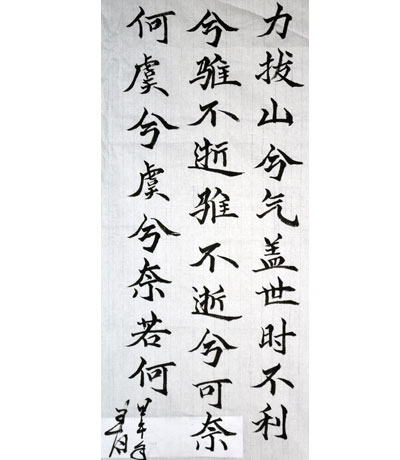 力拔山兮气盖世时不利
兮骓不逝骓不逝兮可奈
何虞兮虞兮奈若何
甲午年